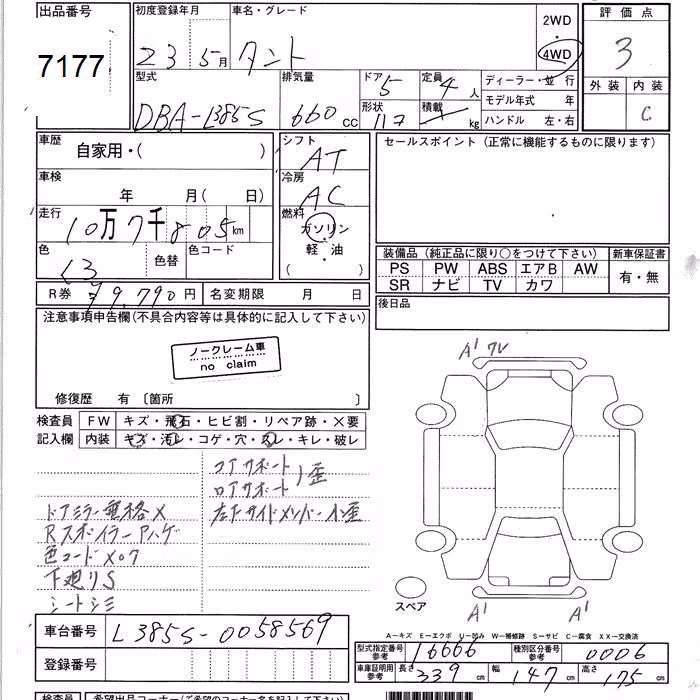 出品番号
7177
初度登録年月 23 5月
車名・グレード タント
2WD
・
4WD
評価点
3
外装 内装
C
型式 DBA-L385S
排気量 660 cc
ドア 5
形状
定員 4 人
積載 kg
ディーラー・並行
モデル年式 年
ハンドル 左・右
車歴 自家用・( )
車検 年 月( 日)
走行 10万7千805km
色 色替
色コード
R券 9,790円
名変期限 月 日
シフト AT
冷房 AC
燃料
ガソリン
・
軽・油
( )
セールスポイント(正常に機能するものに限ります)
装備品(純正品に限り○をつけて下さい)
PS PW ABS エアB AW
SR ナビ TV カワ
新車保証書
有・無
後日品
注意事項申告欄(不具合内容等は具体的に記入して下さい)
ノークレーム車
no claim
修復歴 有 〔箇所 〕
検査員 FW キズ・飛石・ヒビ割・リペア跡・×要
記入欄 内装 キズ・汚レ・コゲ・穴・スレ・キレ・破レ
コアサポート
ロアサポート 小歪
左右サイドメンバー小歪
ドアミラー電格×
Rスポイラーアハゲ
色コードX07
下廻りS
シートシミ
A1 ワレ
A1
A1
スペア
A―キズ E―エクボ U―凹み W―補修跡 S―サビ C―腐食 XX―交換済
車台番号 L385S-0058569
登録番号
型式指定番号 参考 16666
種別区分番号 参考 0006
車庫証明用 参考 長さ 339 cm 幅 147 cm 高さ 175 cm
検査員
希望出品コーナー(ご希望のコーナー名をご記入下さい)